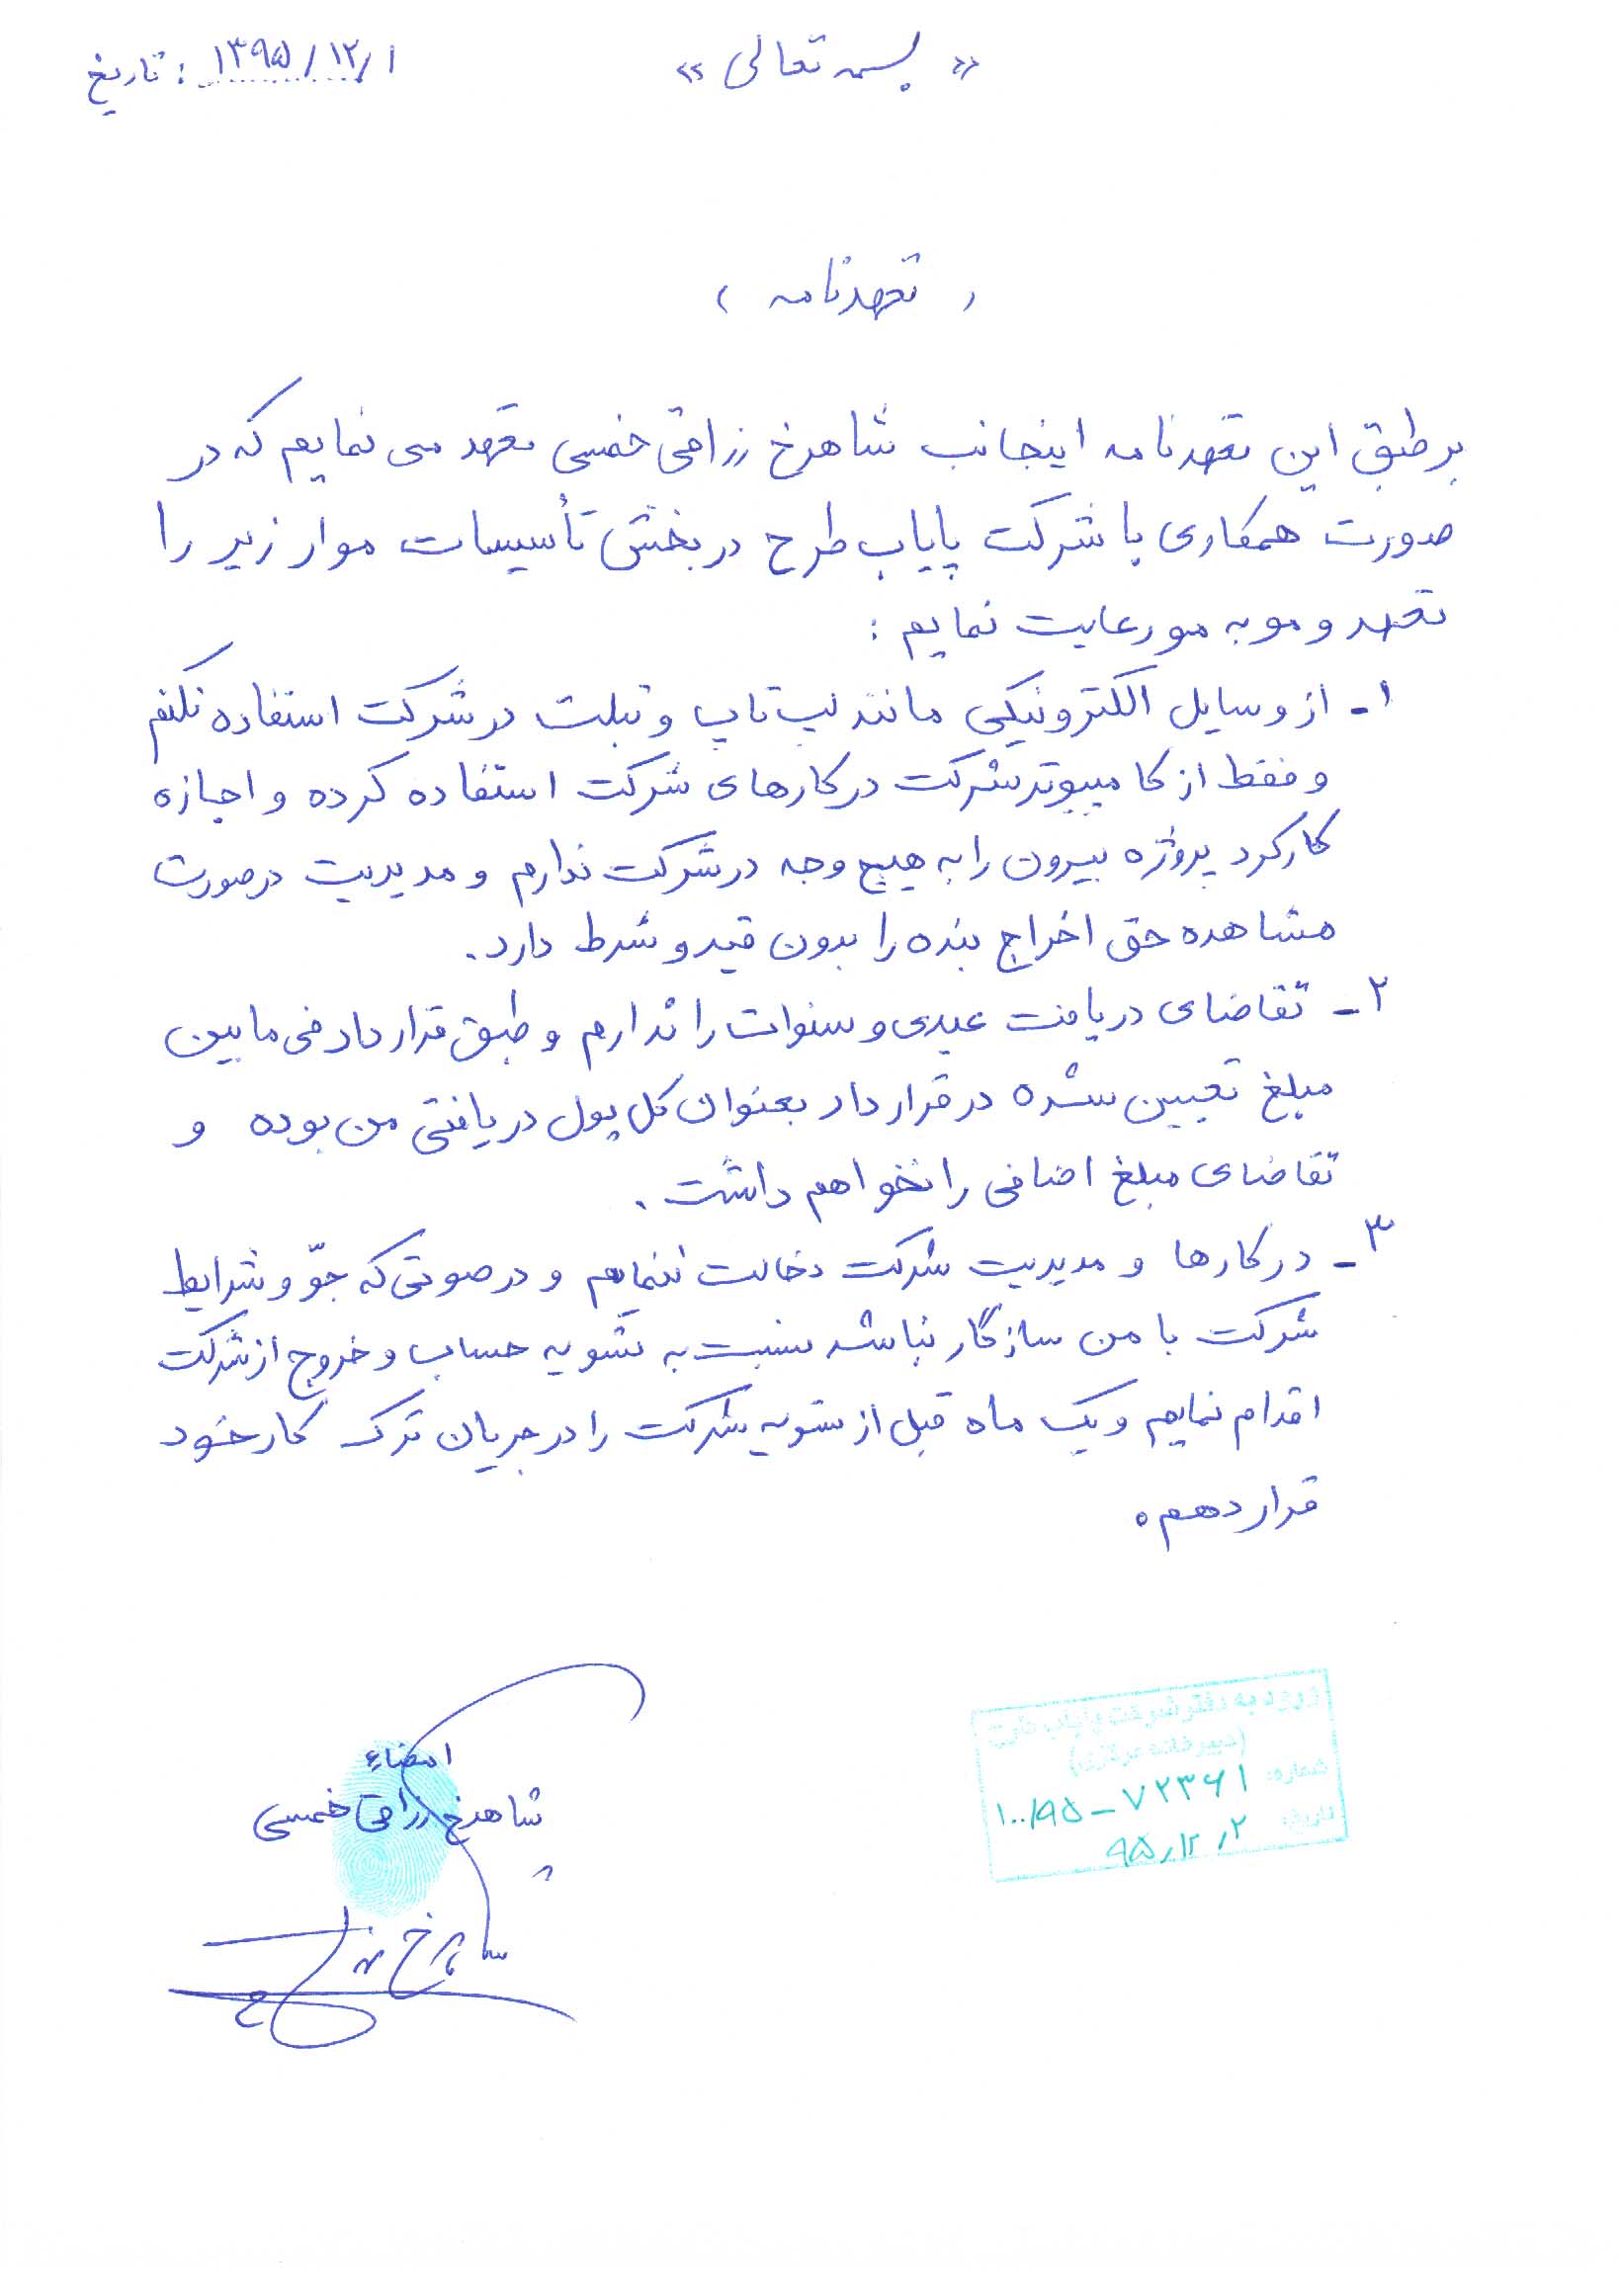 « بسمه تعالی »
تاریخ : ۱۳۹۵/۱۲/۱
( تعهدنامه )
بر طبق این تعهدنامه اینجانب شاهرخ رزاقی خمسی تعهد می نمایم که در
صورت همکاری با شرکت پایاب طرح در بخش تأسیسات موار زیر را
تعهد و مو به مو رعایت نمایم :
۱- از وسایل الکترونیکی مانند لپ تاپ و تبلت در شرکت استفاده نکنم
و فقط از کامپیوتر شرکت در کارهای شرکت استفاده کرده و اجازه
کارکرد پروژه بیرون را به هیچ وجه در شرکت ندارم و مدیریت در صورت
مشاهده حق اخراج بنده را بدون قید و شرط دارد.
۲- تقاضای دریافت عیدی و سنوات را ندارم و طبق قرار داد فی مابین
مبلغ تعیین شده در قرار داد بعنوان کل پول دریافتی من بوده و
تقاضای مبلغ اضافی را نخواهم داشت .
۳- در کارها و مدیریت شرکت دخالت ننمایم و در صوتی که جوّ و شرایط
شرکت با من سازگار نباشد نسبت به تسویه حساب و خروج از شرکت
اقدام نمایم و یک ماه قبل از تسویه شرکت را در جریان ترک کار خود
قرار دهم.
ورود به دفتر شرکت پایاب طرح
(دبیرخانه مرکزی)
شماره: ۱۰۰/۹۵-۷۲۳۶۱
تاریخ: ۹۵/۱۲/۲
امضاء
شاهرخ رزاقی خمسی